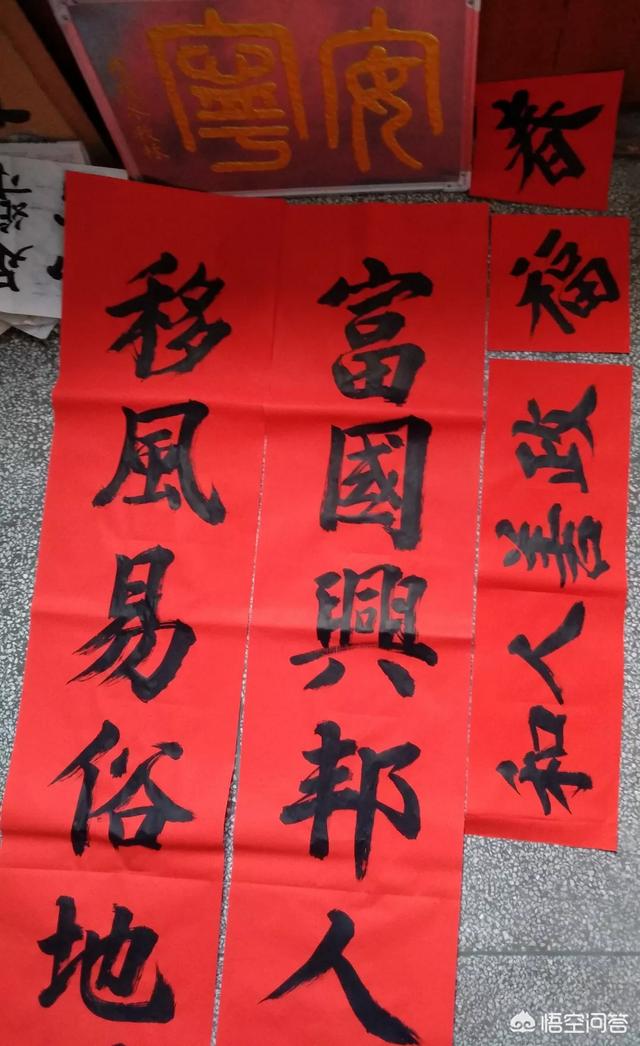 安寧
春
福
政善人和
富國興邦人
移風易俗地
悟空问答